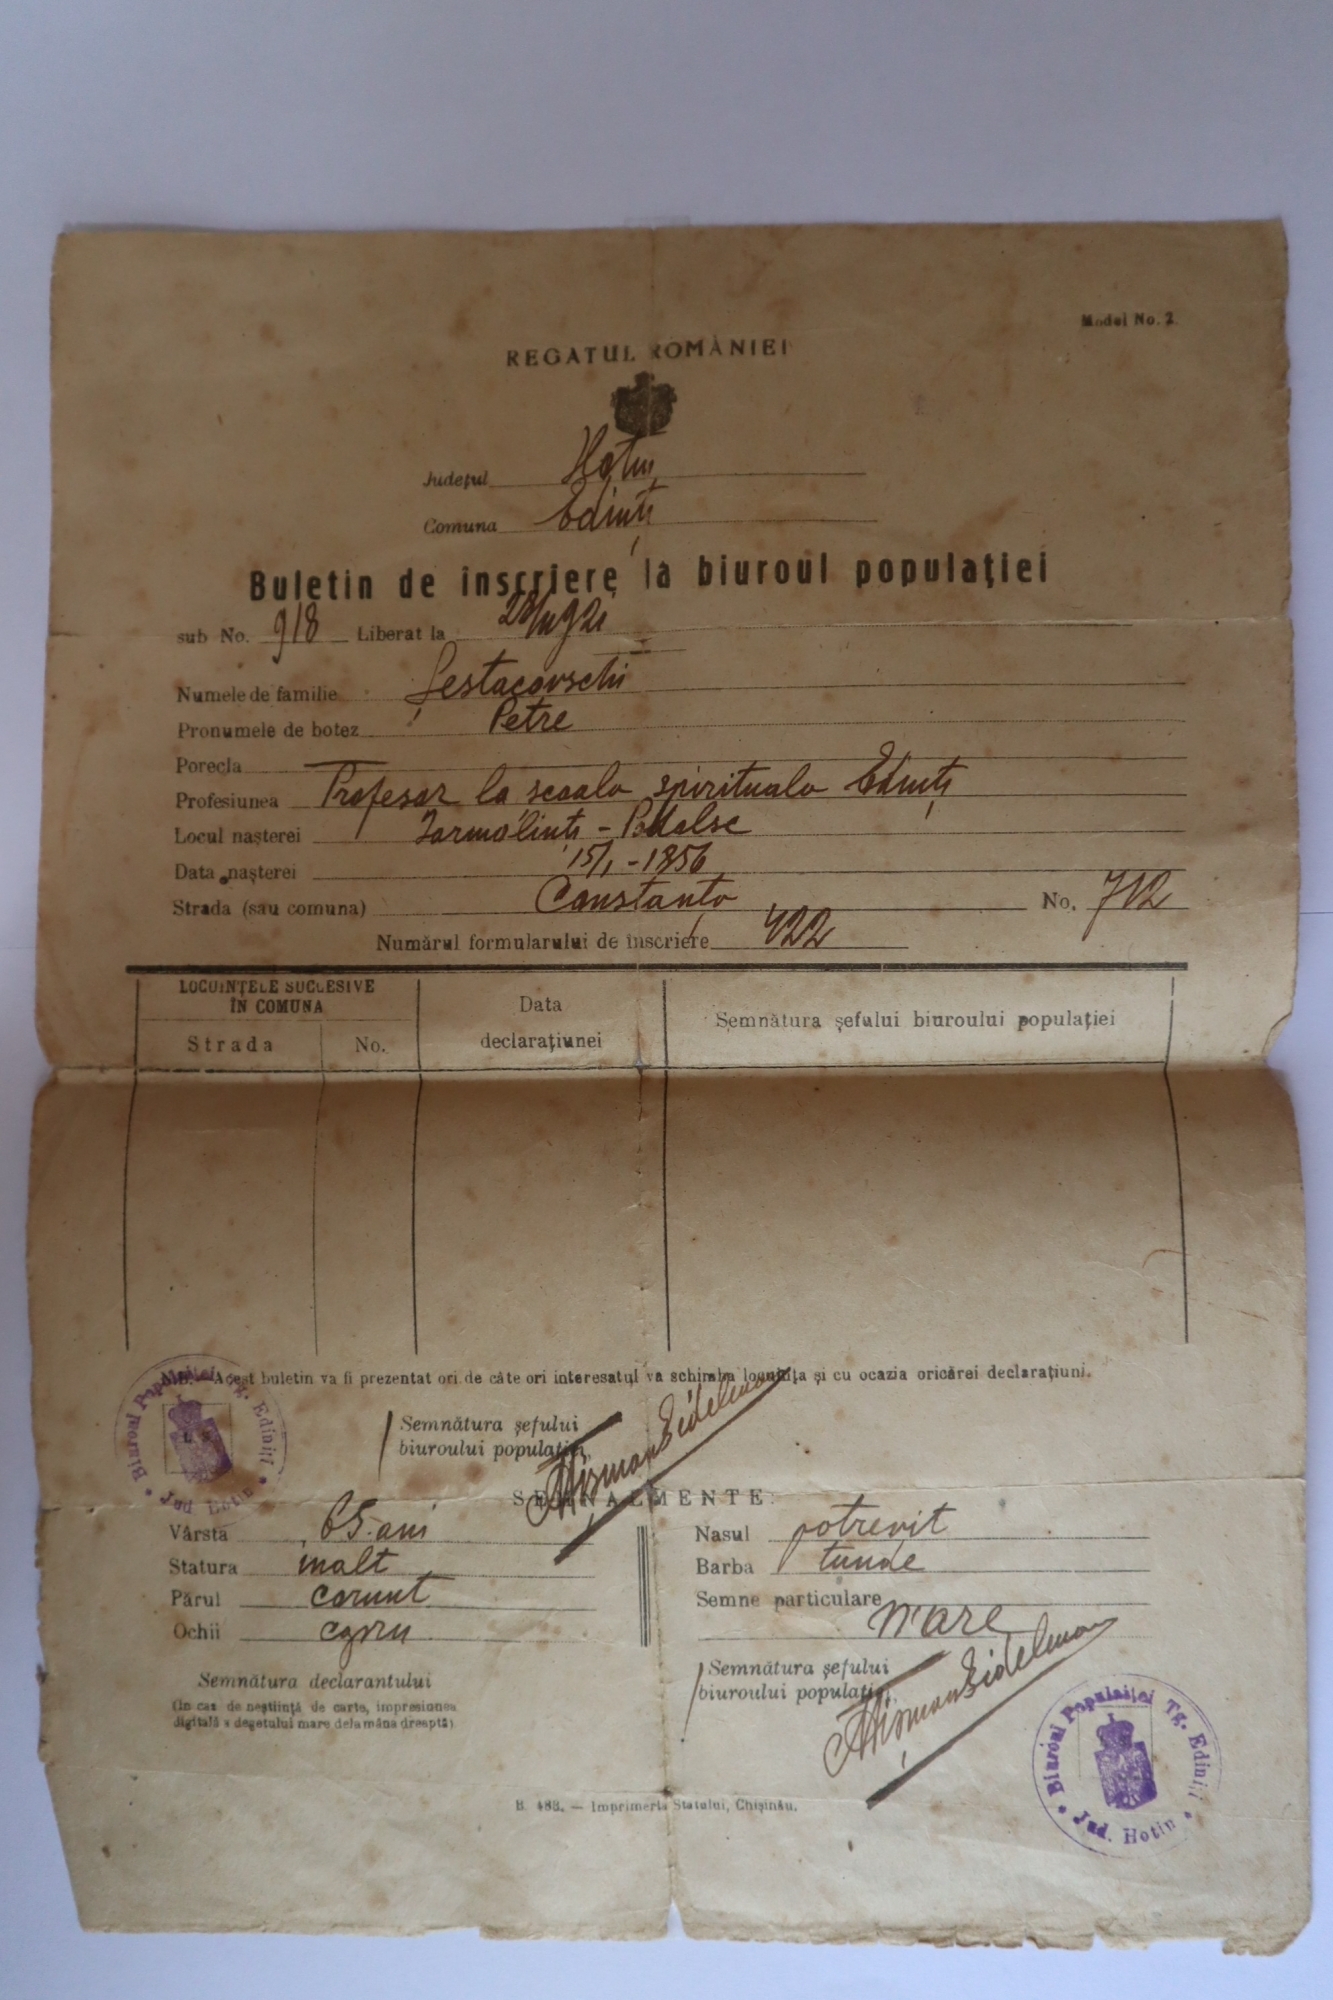 Model No. 2.
REGATUL ROMÂNIEI
Județul Hotin
Comuna Edinți
Buletin de înscriere la biuroul populației
sub No. 918 Liberat la
Numele de familie Șestacovschi
Pronumele de botez Petre
Porecla —
Profesiunea Profesor la scoala spirituala Edinți
Locul nașterei Iarmolinți - Podolsc
Data nașterei 15/I - 1856
Strada (sau comuna) Constanța No. 712
Numărul formularului de înscriere 422
LOCUINȚELE SUCCESIVE
ÎN COMUNA
Strada No.
Data
declarațiunei
Semnătura șefului biuroului populației
Acest buletin va fi prezentat ori de câte ori interesatul va schimba locuința și cu ocazia oricărei declarațiuni.
Biuroul Populaiței Tg. Ediniți
Jud. Hotin
Semnătura șefului
biuroului populației,
SEMNALMENTE:
Vârsta 65 ani
Statura inalt
Părul carunt
Ochii
Nasul potrevit
Barba tunde
Semne particulare
n'are
Semnătura declarantului
(In caz de neștiință de carte, impresiunea
digitală a degetului mare dela mâna dreaptă)
Semnătura șefului
biuroului populației,
Biuroul Populaiței Tg. Ediniți
Jud. Hotin
B. 483. — Imprimeria Statului, Chișinău.